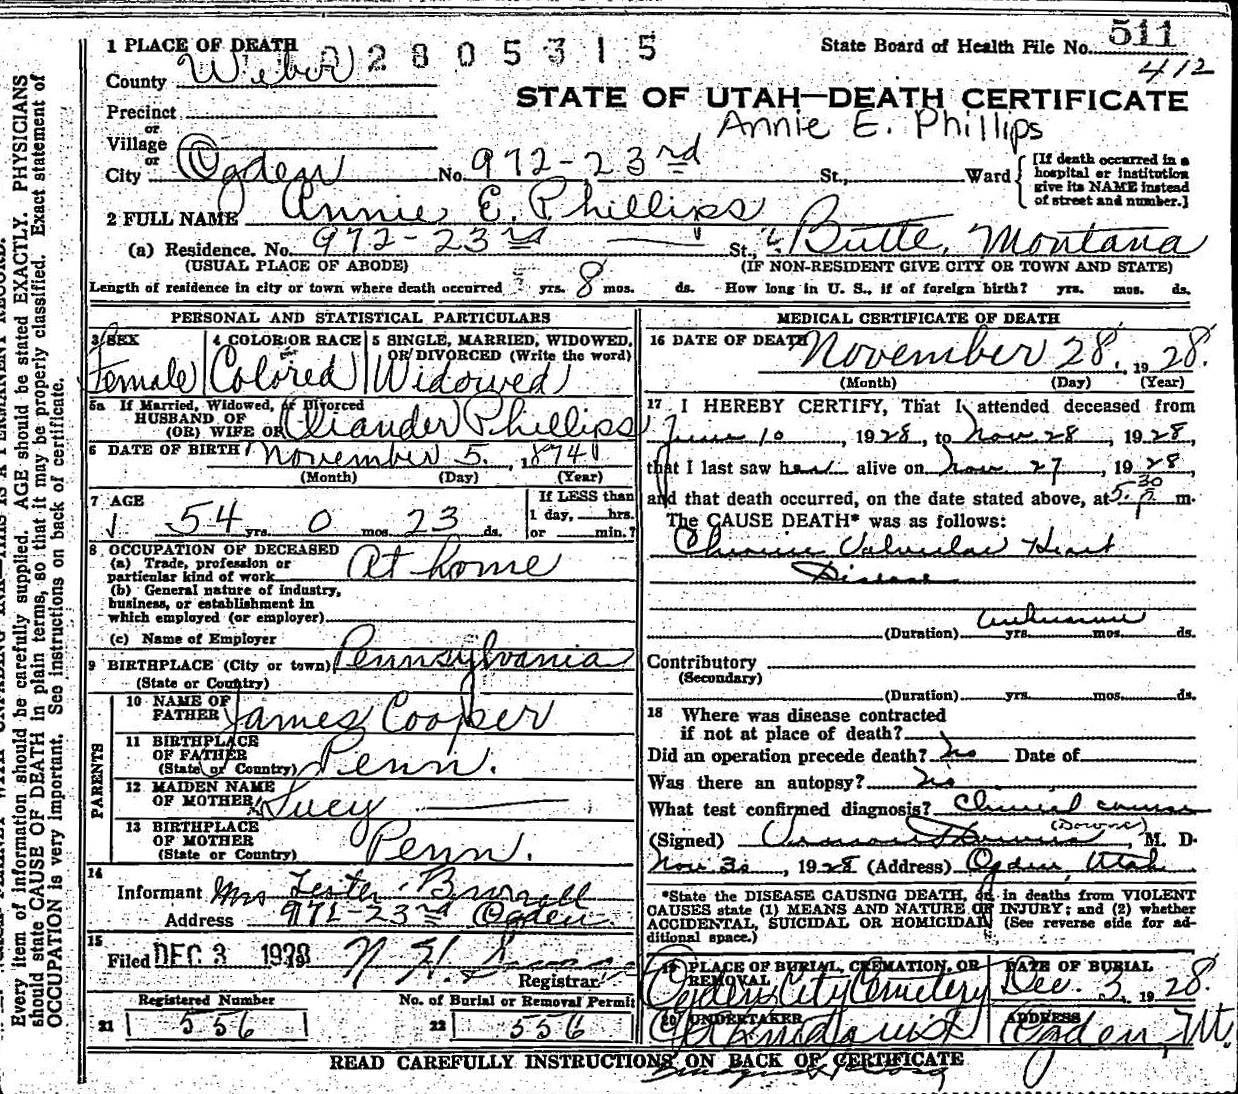 1 PLACE OF DEATH
0 2 8 0 5 3 1 5
State Board of Health File No. 511
412
County Weber
STATE OF UTAH—DEATH CERTIFICATE
Precinct
Annie E. Phillips
or
Village
or
City Ogden No. 972-23rd St., Ward
[If death occurred in a hospital or institution give its NAME instead of street and number.]
2 FULL NAME Annie E. Phillips
(a) Residence. No. 972-23rd St., Butte, Montana
(USUAL PLACE OF ABODE) (IF NON-RESIDENT GIVE CITY OR TOWN AND STATE)
Length of residence in city or town where death occurred yrs. 8 mos. ds. How long in U. S., if of foreign birth? yrs. mos. ds.
PERSONAL AND STATISTICAL PARTICULARS
3 SEX
Female
4 COLOR OR RACE
Colored
5 SINGLE, MARRIED, WIDOWED, OR DIVORCED (Write the word)
Widowed
5a If Married, Widowed, or Divorced
HUSBAND OF
(OR) WIFE OF Phillips
6 DATE OF BIRTH November 5, 1874
(Month) (Day) (Year)
7 AGE
54 yrs. 0 mos. 23 ds.
If LESS than
1 day, hrs.
or min.?
8 OCCUPATION OF DECEASED
(a) Trade, profession or
particular kind of work At home
(b) General nature of industry,
business, or establishment in
which employed (or employer)
(c) Name of Employer
9 BIRTHPLACE (City or town) Pennsylvania
(State or Country)
PARENTS
10 NAME OF
FATHER James Cooper
11 BIRTHPLACE
OF FATHER
(State or Country) Penn.
12 MAIDEN NAME
OF MOTHER Lucy
13 BIRTHPLACE
OF MOTHER
(State or Country) Penn.
14
Informant Mrs Lester
Address 972-23rd Ogden
15
Filed DEC 3 1928
Registrar
Registered Number
21 556
No. of Burial or Removal Permit
22 556
MEDICAL CERTIFICATE OF DEATH
16 DATE OF DEATH November 28, 1928.
(Month) (Day) (Year)
17 I HEREBY CERTIFY, That I attended deceased from
June 10, 1928, to Nov 28, 1928,
that I last saw her alive on Nov 27, 1928,
and that death occurred, on the date stated above, at 5:30 P. m.
The CAUSE DEATH* was as follows:
Chronic Valvular Heart
Disease
(Duration) unknown yrs. mos. ds.
Contributory
(Secondary)
(Duration) yrs. mos. ds.
18 Where was disease contracted
if not at place of death?
Did an operation precede death? no Date of
Was there an autopsy? no
What test confirmed diagnosis? Clinical course
(Signed) M. D.
Nov 30, 1928 (Address) Ogden, Utah
*State the DISEASE CAUSING DEATH, or in deaths from VIOLENT
CAUSES state (1) MEANS AND NATURE OF INJURY; and (2) whether
ACCIDENTAL, SUICIDAL OR HOMICIDAL (See reverse side for ad-
ditional space.)
19 PLACE OF BURIAL, CREMATION, OR
REMOVAL
Ogden City Cemetery
DATE OF BURIAL
Dec. 3, 1928.
20 UNDERTAKER
ADDRESS
Ogden, Ut.
READ CAREFULLY INSTRUCTIONS ON BACK OF CERTIFICATE
Every item of information should be carefully supplied. AGE should be stated EXACTLY. PHYSICIANS
should state CAUSE OF DEATH in plain terms, so that it may be properly classified. Exact statement of
OCCUPATION is very important. See instructions on back of certificate.